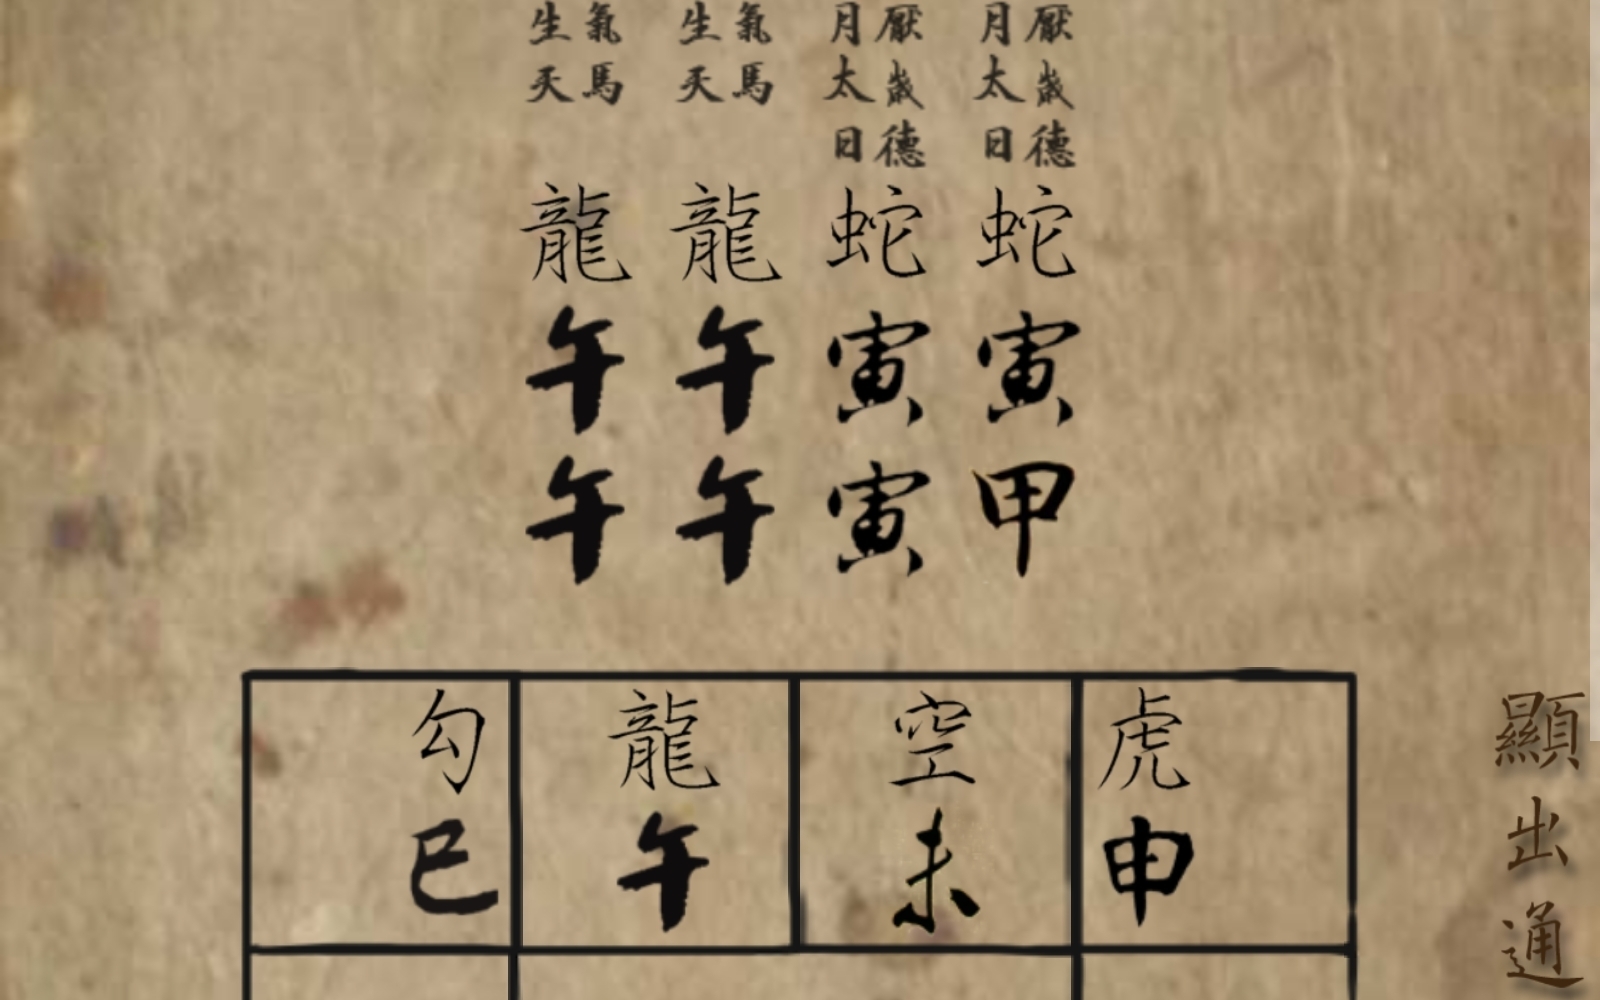 生氣 生氣 月厭 月厭
天馬 天馬 太歲 太歲
日德 日德
龍 龍 蛇 蛇
午 午 寅 寅
午 午 寅 甲
勾 龍 空 虎
巳 午 未 申
顯出通